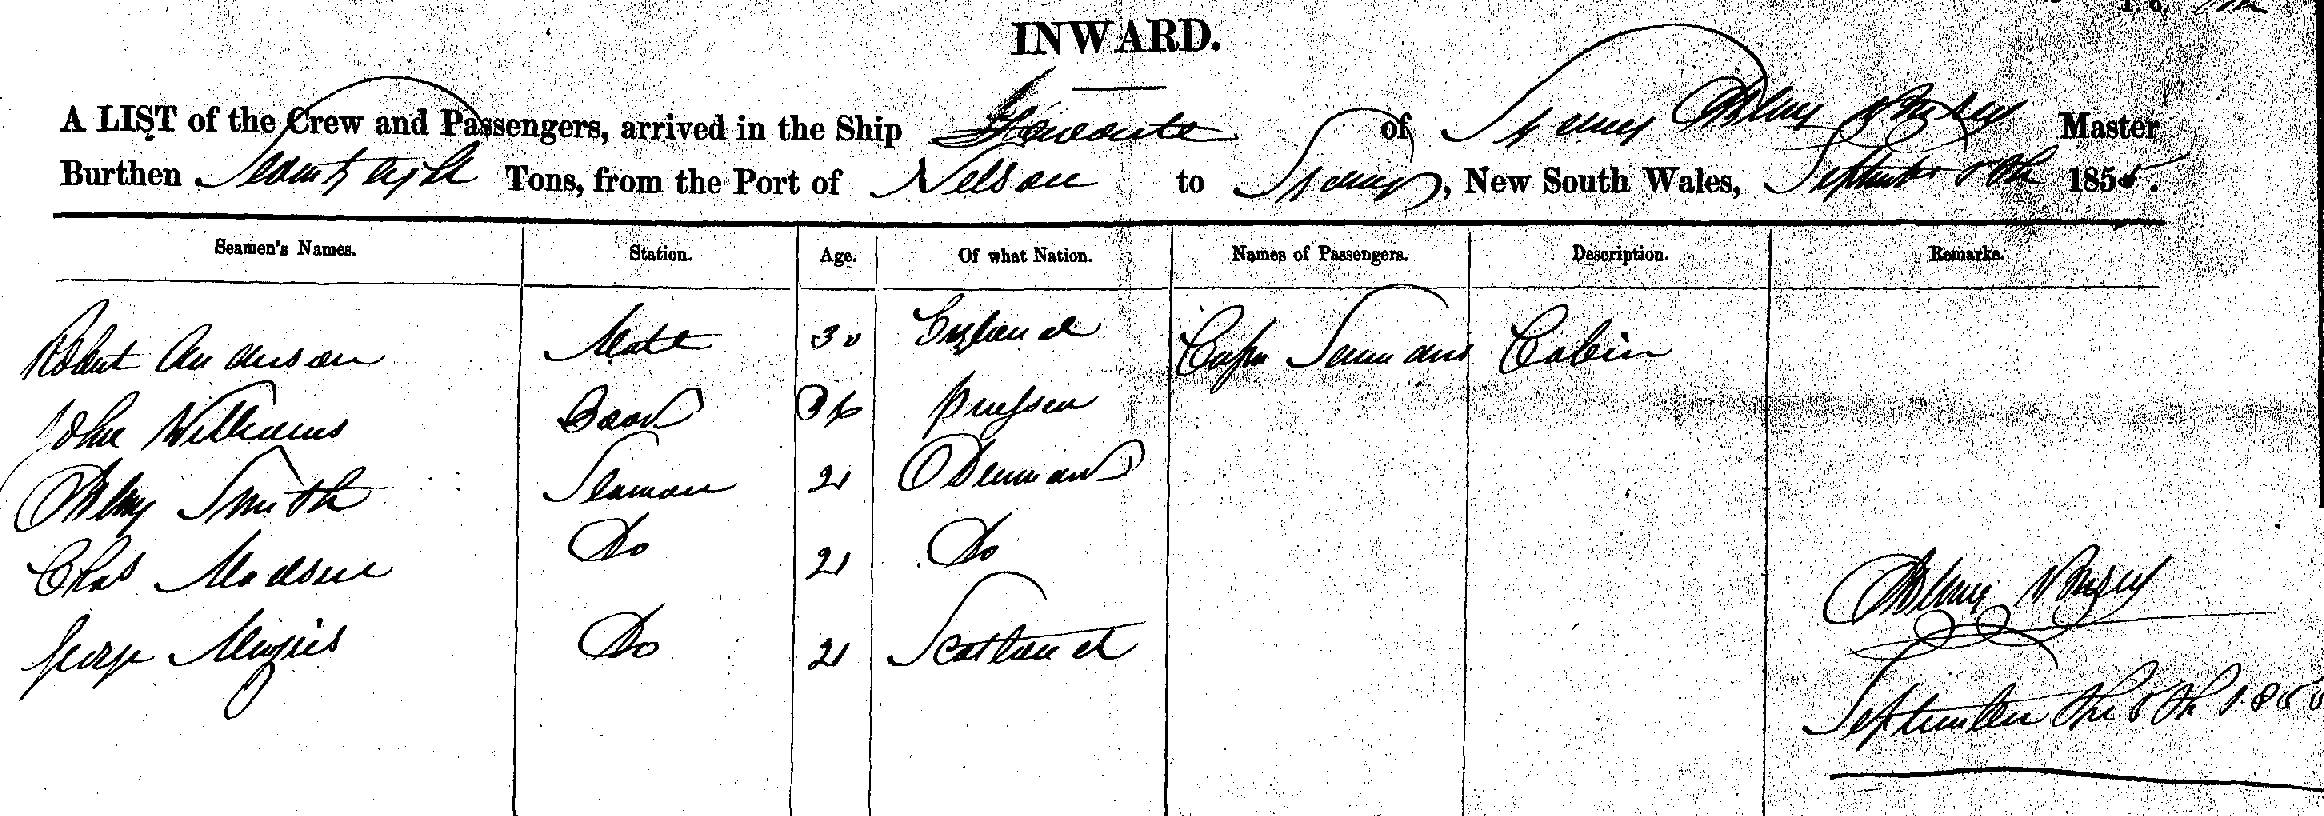 INWARD.
A LIST of the Crew and Passengers, arrived in the Ship of Sydney Henry Master
Burthen Seventy eight Tons, from the Port of Nelson to Sydney, New South Wales, September 8th 1855.
Seamen's Names. Station. Age. Of what Nation. Names of Passengers. Description. Remarks.
Robert Anderson Mate 30 England Capn Cabin
John Williams Cook 36 Prussen
Henry Smith Seaman 21 Denmark
Chas Madsen Do 21 Do
George Do 21 Scotland
Henry
September the 8th 1855